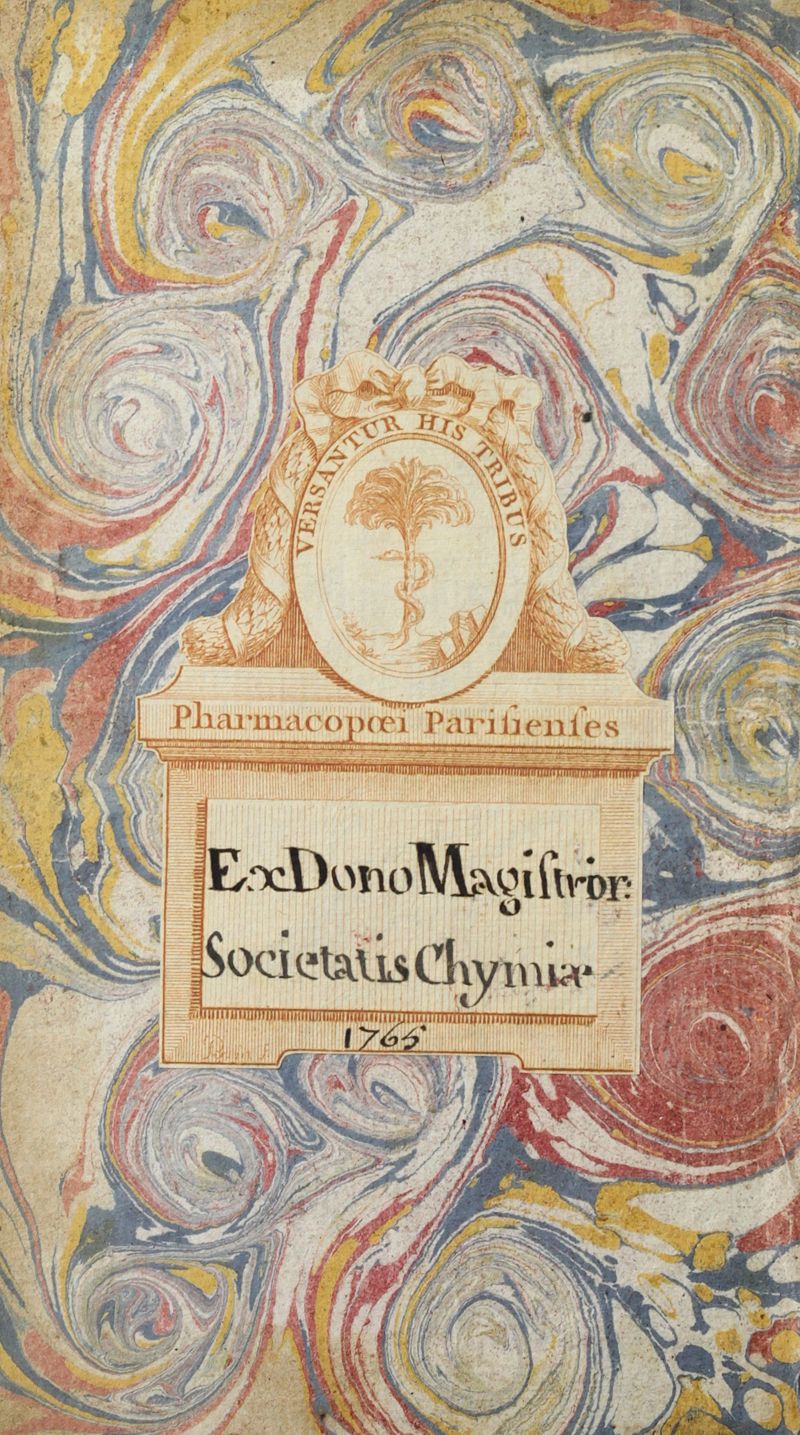 VERSANTUR HIS TRIBUS
Pharmacopœi Pariſienſes
Ex Dono Magiſtror:
Societatis Chymiæ
1765